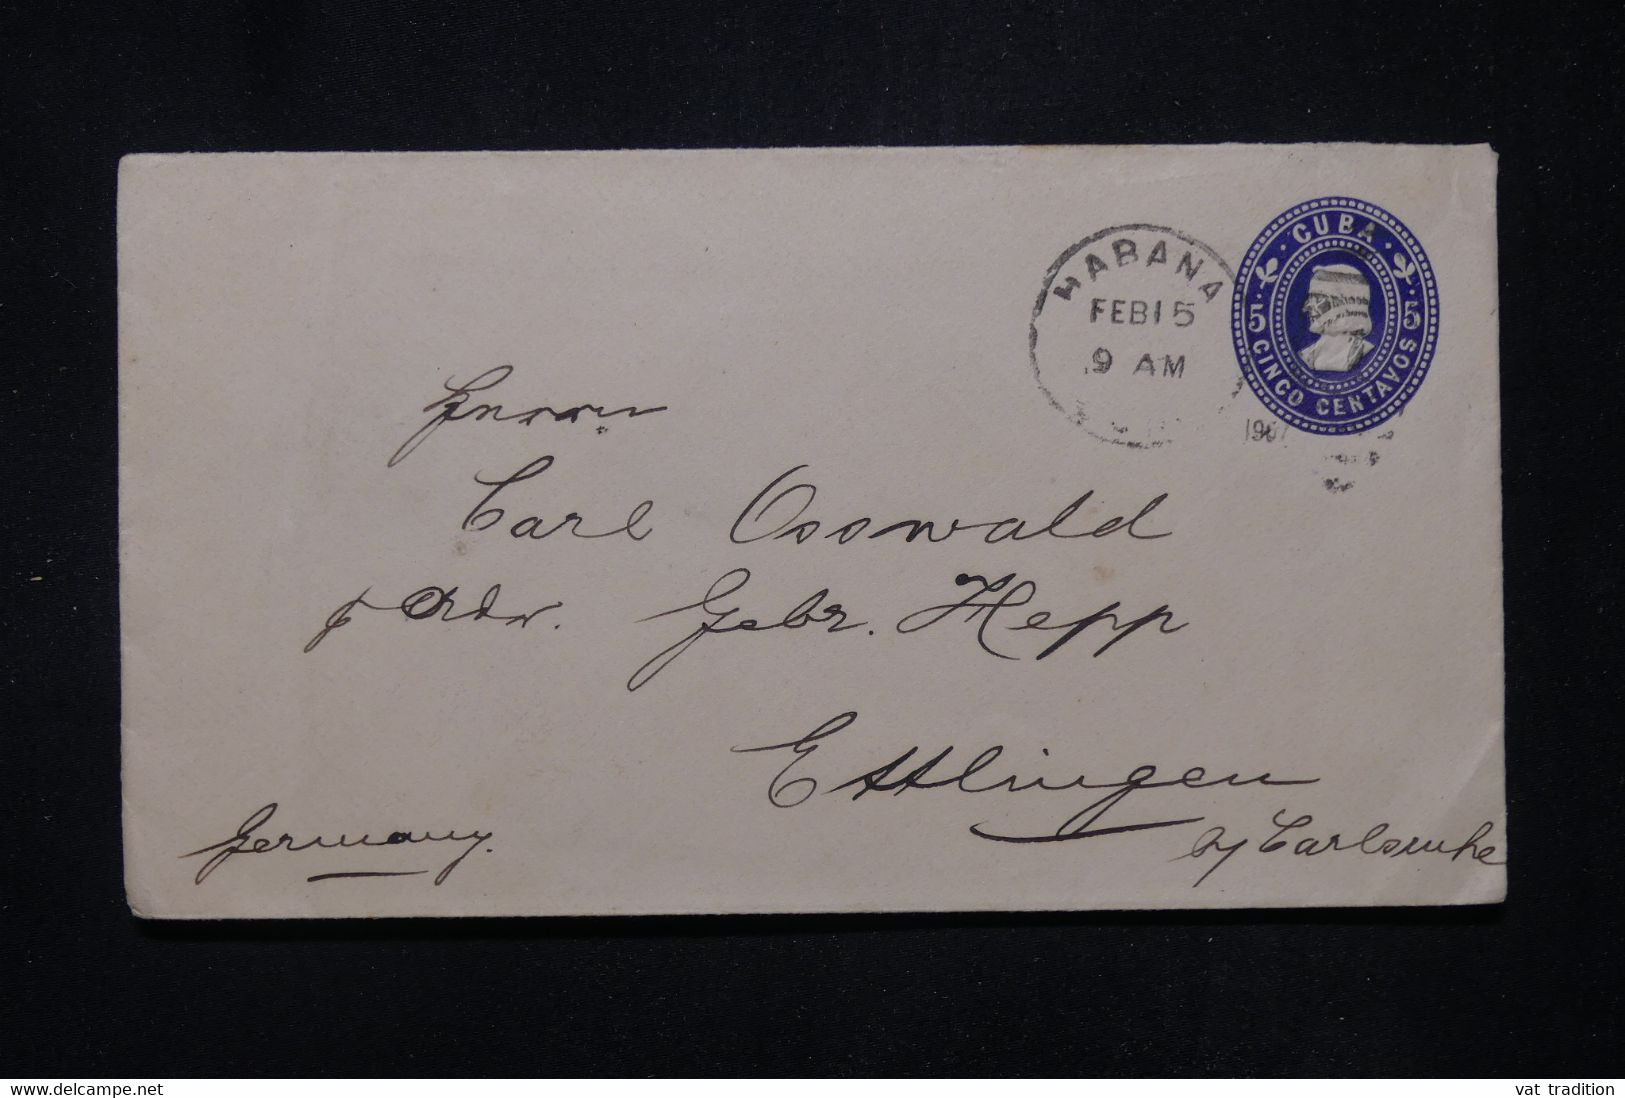 CUBA
5 5
CINCO CENTAVOS
HABANA
FEB 15
9 AM
1907
Herrn
Carl Osswald
p Adr. Gebr. Hepp
Ettlingen
by Carlsruhe
Germany.
www.delcampe.net
vat tradition